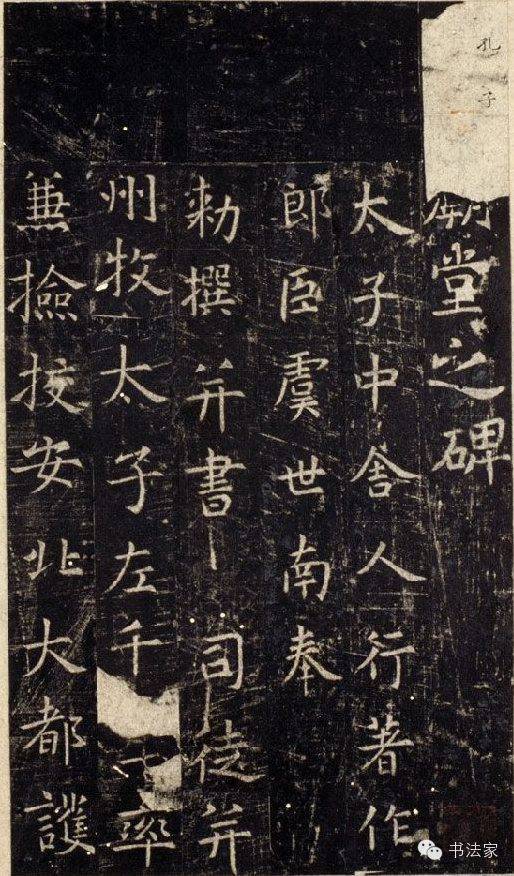 孔子
廟堂之碑
太子中舍人行著作
郎臣虞世南奉
勑撰并書 司徒并
州牧太子左千牛率
兼撿挍安北大都護
书法家